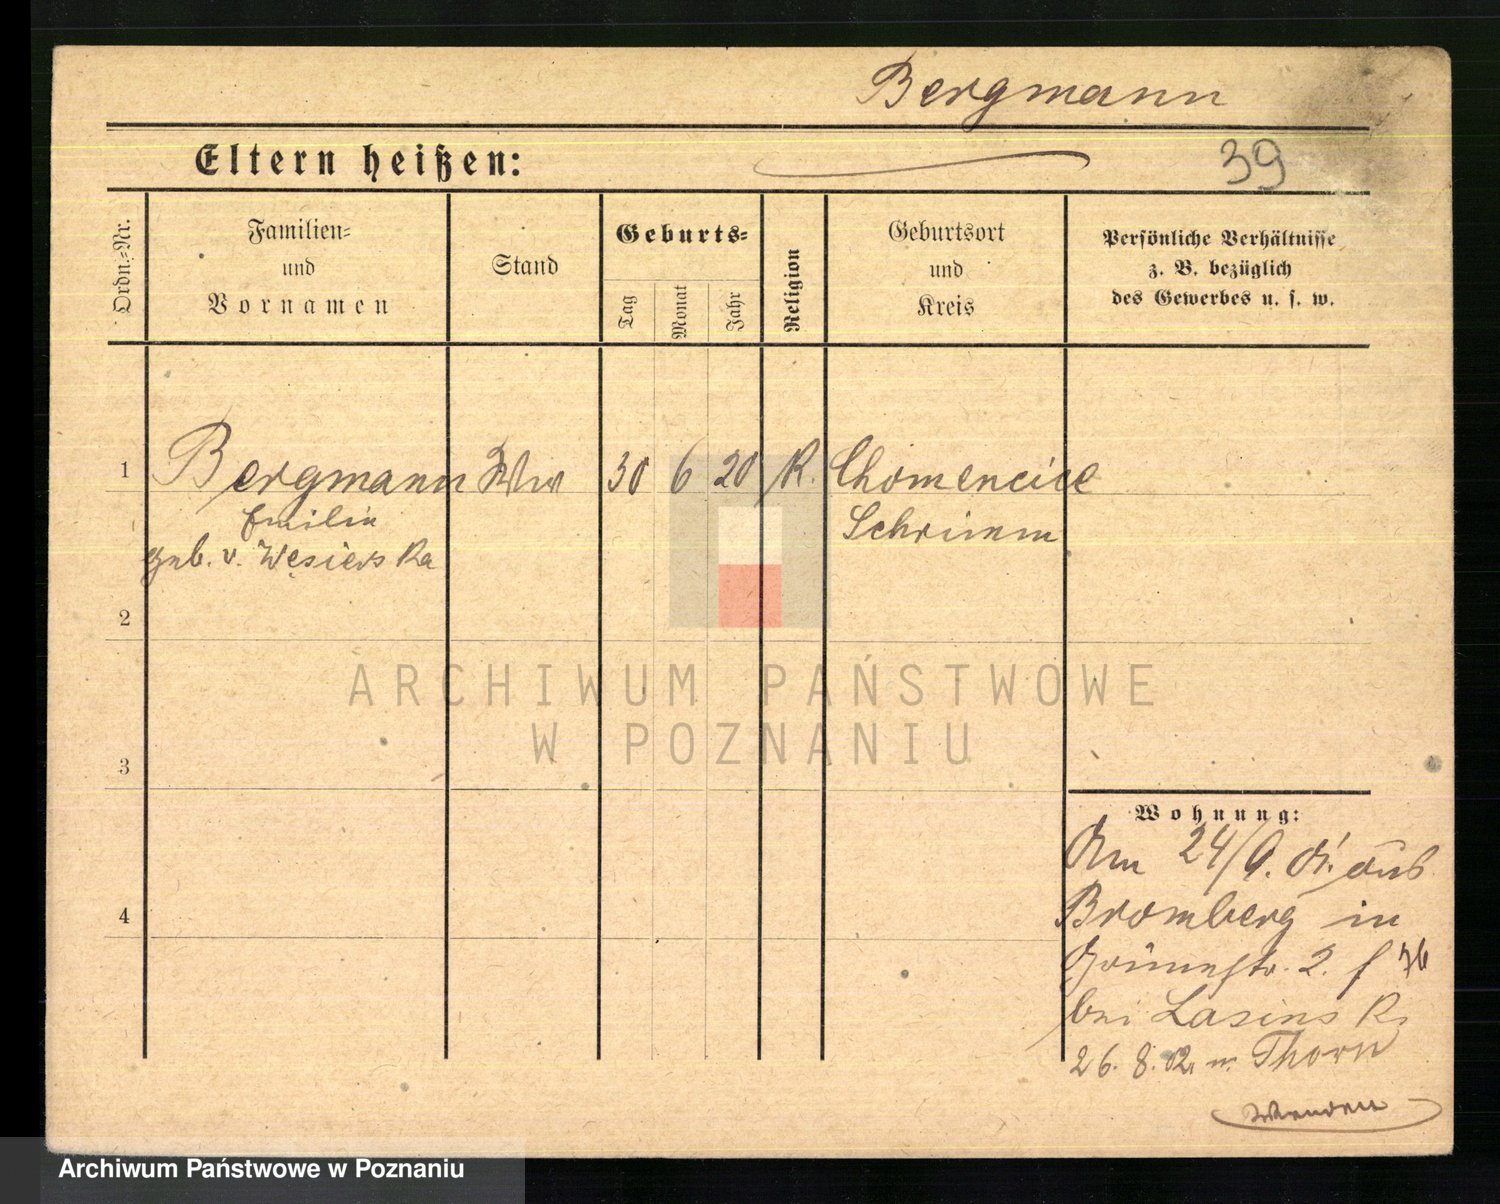 Bergmann
Eltern heißen:
39
Ordn.-Nr.
Familien-
und
Vornamen
Stand
Geburts-
Tag
Monat
Jahr
Religion
Geburtsort
und
Kreis
Persönliche Verhältnisse
z. B. bezüglich
des Gewerbes u. s. w.
1 Bergmann Ww 30 6 20 K. Chomencice
Emilie Schrimm
geb. v. Węsierska
2
ARCHIWUM PAŃSTWOWE
W POZNANIU
3
4
Wohnung:
Am 24/9. aus
Bromberg in
2. 
bei Lasinski
26. 8. 02. n. Thorn
Wenden
Archiwum Państwowe w Poznaniu